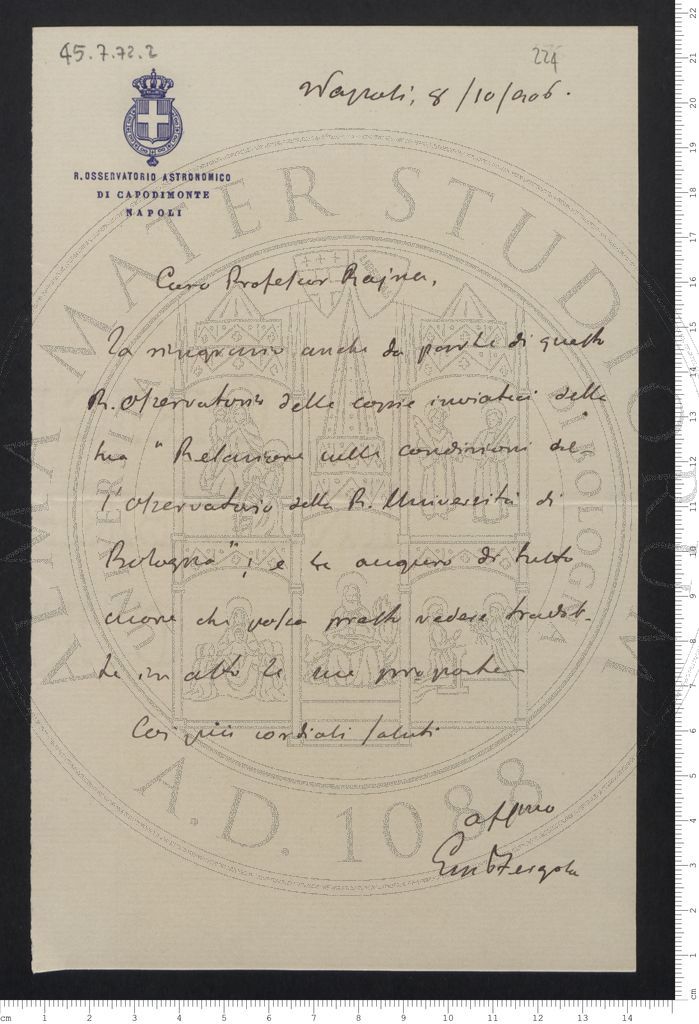 45.7.72.2
224
Napoli, 8/10/906.
R. OSSERVATORIO ASTRONOMICO
DI CAPODIMONTE
NAPOLI
Caro Professor Rajna,
La ringrazio anche da parte di questo
R. Osservatorio delle copie inviateci della
sua "Relazione sulle condizioni del-
l'Osservatorio della R. Università di
Bologna"; e Le auguro di tutto
cuore che possa presto vedere tradot-
te in atto le sue proposte
Coi più cordiali saluti
aff.mo
Em. Fergola
ALMA MATER STUDIORUM
UNIVERSITÀ DI BOLOGNA
A.D. 1088